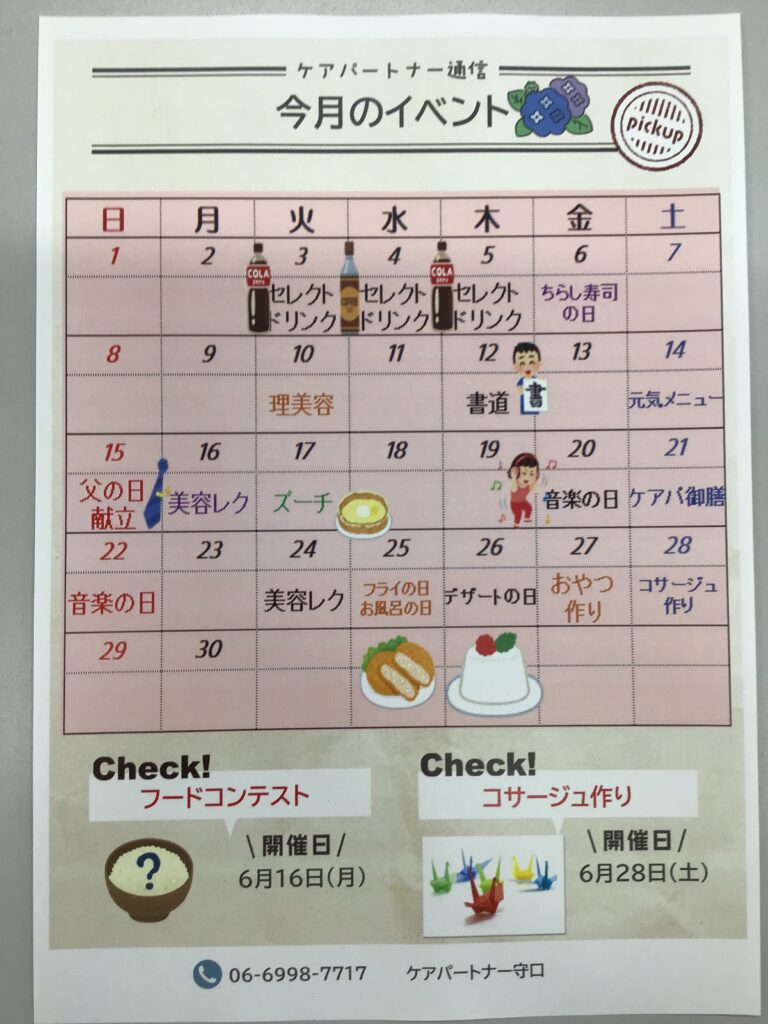 ケアパートナー通信
今月のイベント
pickup
日 月 火 水 木 金 土
1 2 3 4 5 6 7
COLA
zero
セレクト
ドリンク
COFFEE
セレクト
ドリンク
COLA
zero
セレクト
ドリンク
ちらし寿司
の日
8 9 10 11 12 13 14
理美容
書道
書
元気メニュー
15 16 17 18 19 20 21
父の日
献立
美容レク
ズーチ
音楽の日
ケアパ御膳
22 23 24 25 26 27 28
音楽の日
美容レク
フライの日
お風呂の日
デザートの日
おやつ
作り
コサージュ
作り
29 30
Check!
フードコンテスト
?
\ 開催日 /
6月16日(月)
Check!
コサージュ作り
\ 開催日 /
6月28日(土)
06-6998-7717 ケアパートナー守口